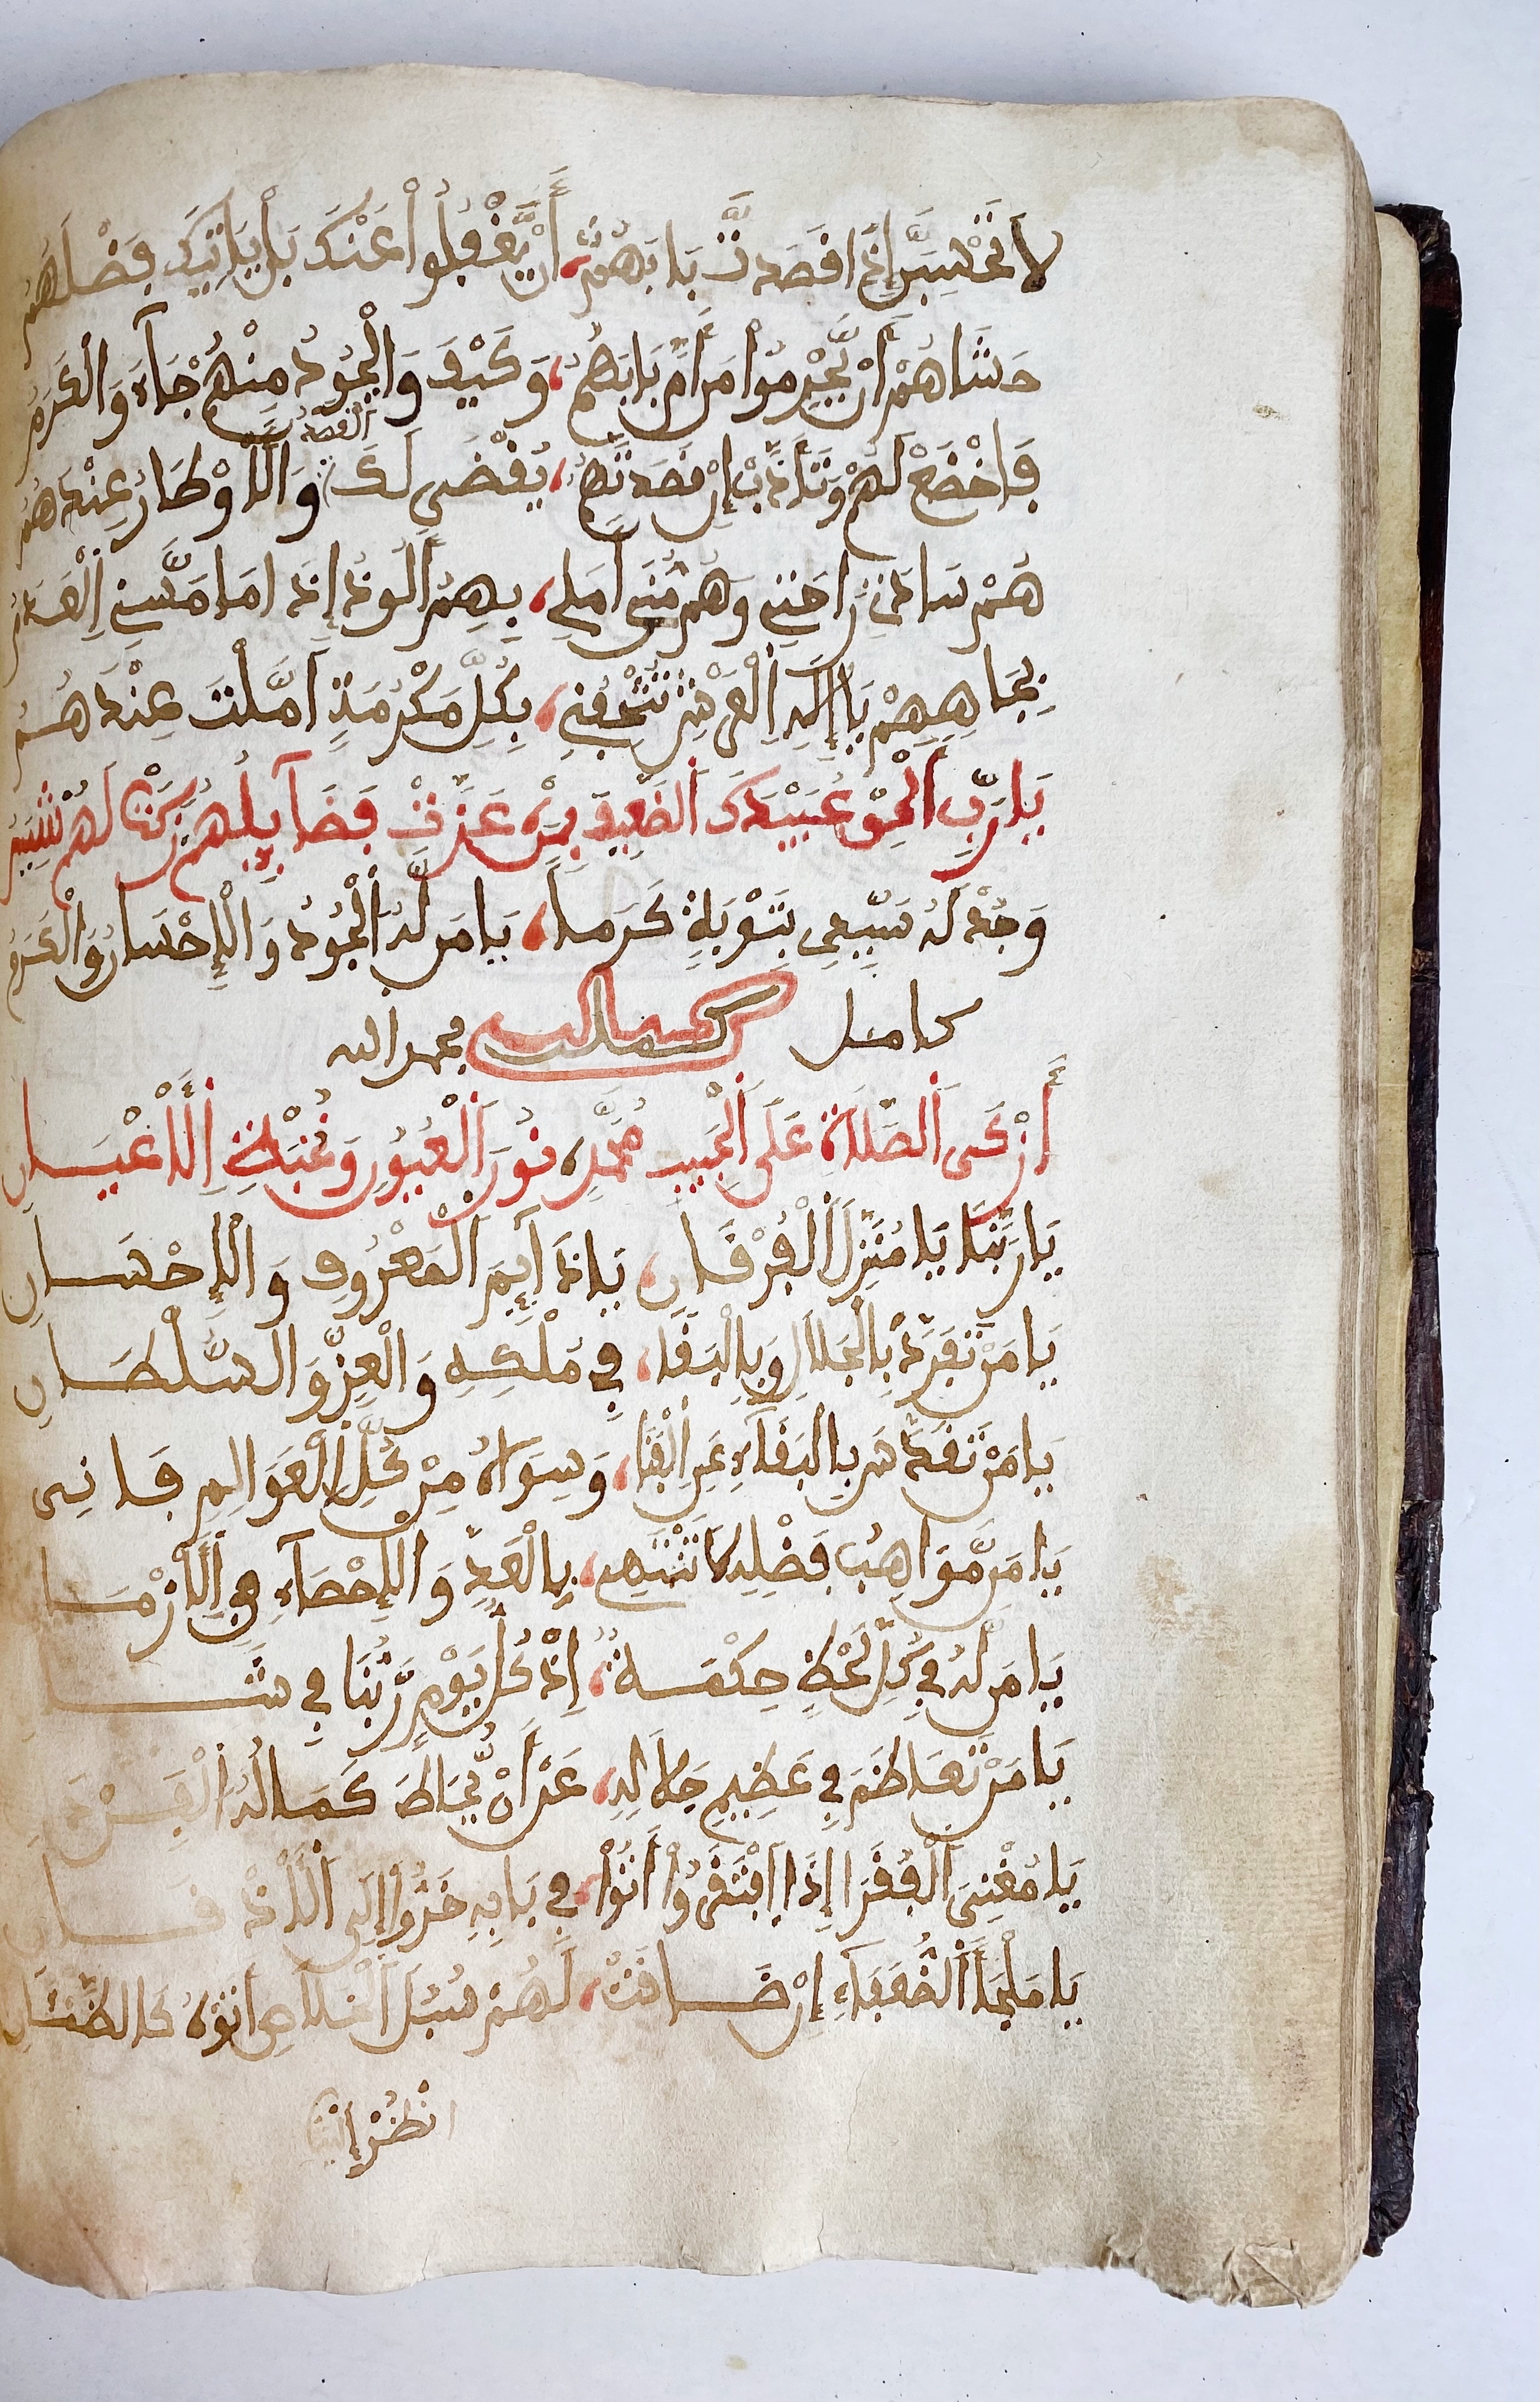 لَا تَحْسِبَنْ إِذَا قَصَدتَّ بَابَهُمُ، أَنْ يَّغْفُلُواْ عَنْكَ بَلْ يَاتِيكَ فَضْلُهُمُ
حَشَاهُمْ أَنْ يَّحْرِمُواْ مَنْ أَمَّ بَابَهُمُ، وَكَيْفَ وَالْجُودُ مِنْهُمْ جَآءَ وَالْكَرَمُ
فَاخْضَعْ لَهُمْ وَتَأَدَّبْ إِنْ قَصَدتَّهُمُ، يُقْضَى لَكَ الْقَصْدُ وَالَاوْطَارُ عِنْدَهُمُ
هُمْ سَادَتِي رَاحَتِي وَهُمْ مُنَى أَمَلِي، بِهِمْ أَلُوذُ إِذَا مَا مَسَّنِي الْعَدَمُ
بِجَاهِهِمْ يَا إِلَهَ الْعَرْشِ تُتْحِفُنِي، بِكُلِّ مَكْرُمَةٍ أَمَّلْتُ عِنْدَهُمُ
يَا رَبِّ الْحِقْ عُبَيْدَكَ الضَّعِيفَ بِمَنْ عَزَّتْ فَضَآئِلُهُمْ
وَجُدْ لَهُ سَيِّدِي بِتَوْبَةٍ كَرَماً، يَا مَن لَّهُ الْجُودُ وَالْإِحْسَانُ وَالْكَرَمُ
كامل كملت بحمد الله
أَزْكَى الصَّلَاةِ عَلَى الْحَبِيبِ مُحَمَّدِ، نُورِ الْعُيُونِ وَنُخْبَةِ الْأَعْيَانِ
يَا رَبَّنَا يَا مُنَزِّلَ الْفُرْقَانِ، يَا دَآئِمَ الْمَعْرُوفِ وَالْإِحْسَانِ
يَا مَنْ تَفَرَّدَ بِالْجَلَالِ وَبِالْبَقَا، فِي مُلْكِهِ وَالْعِزِّ وَالسُّلْطَانِ
يَا مَنْ تَقَدَّسَ بِالْبَقَآءِ عَنِ الْفَنَا، وَسِوَاهُ مِنْ كُلِّ الْعَوَالِمِ فَانِى
يَا مَن مَّوَاهِبُ فَضْلِهِ لَا تَنْتَهِي، بِالْعَدِّ وَالْإِحْصَآءِ فِي الْأَزْمَا
يَا مَن لَّهُ فِي كُلِّ لَحْظٍ حِكْمَةٌ، إِذْ كُلَّ يَوْمٍ رَّبُّنَا فِي شَا
يَا مَنْ تَعَاظَمَ فِي عَظِيمِ جَلَالِهِ، عَنْ أَنْ يُّحَاطَ كَمَالُهُ
يَا مُغْنِيَ الْفُقَرَا إِذَا افْتَقَرُواْ أَتَوْا، فِي بَابِهِ خَرُّواْ إِلَى الْأَذْقَانِ
يَا مَلْجَأَ الضُّعَفَآءِ إِنْ ضَاقَتْ، لَهُمْ سُبُلُ الْخَلَاصِ أَتَوْهُ كَالظَّمْآنِ
انْظُرْ إِلَيْنَا